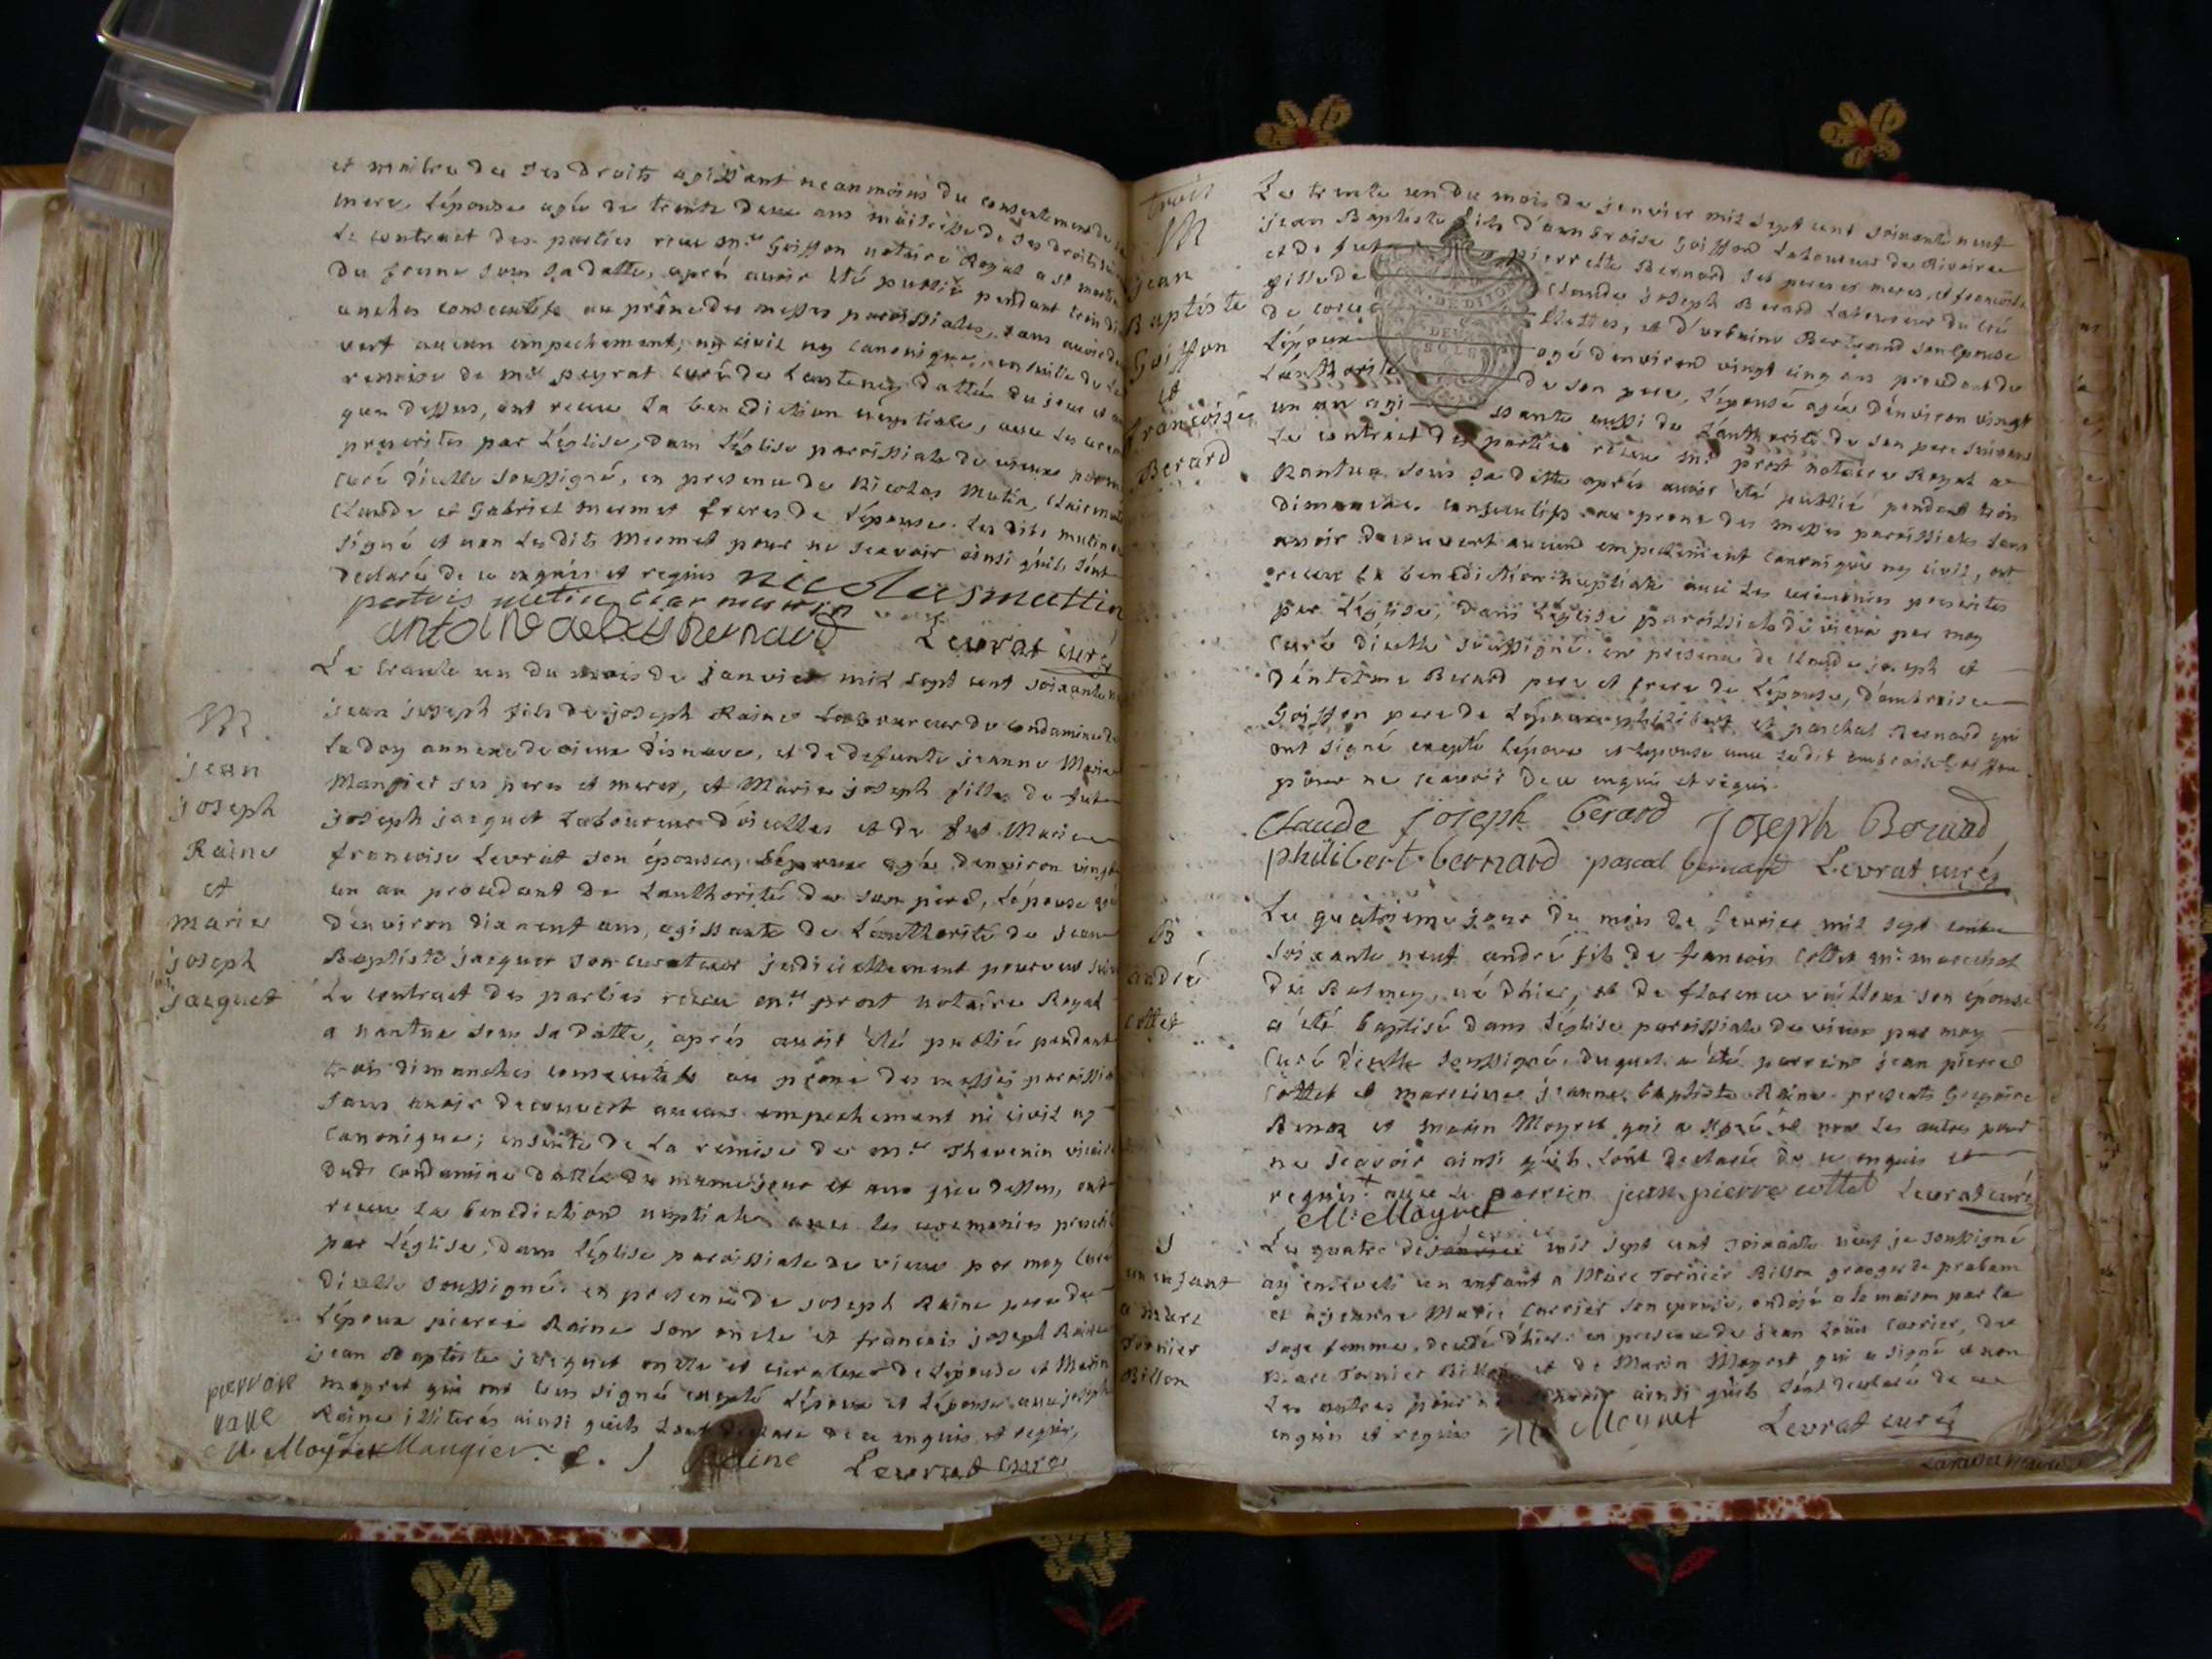 et maitre de ses droits agissant neanmoins du consentement de sa
mere, l'épouse agée de trente deux ans maitresse de ses droits
le contract des parties reçu mre Goiffon notaire Royal a st martin
du frene sous sa datte, aprés avoir été publié pendant trois dim
anches consecutifs au prône des messes paroissiales, sans avoir dec
vert aucun empechement, ny civil ny canonique, ensuite de la
remise de mre peyrat curé de Lantenay dattée du jour et an
que dessus, ont recue la benediction nuptiale, avec les cerem
prescrites par l'église, dans l'église paroissiale de vieux par m
curé d'icelle soussigné, en presence de Nicolas Mutin,
Claude et Gabriel mermet freres de l'épouse. les dits mutin
signé et non les dits Mermet pour ne sçavoir ainsi qu'ils l'ont
declaré de ce enquis et requis nicolas muttin
Levrat curé
Le trente un du mois de janvier mil sept cent soixante n
jean joseph fils de joseph Raine laboureur de condamine de
la doy annexe de vieux d'isnave, et de defunte jeanne Marie
Maugier ses peres et meres, et Marie joseph fille de fut
joseph jacquet laboureur d' et de fut Marie
francoise Levrat son épouse, l'époux agé d'environ vingt
un an procedant de l'authorité de son pere, l'épouse agé
d'environ dix neuf ans, agissante de l'authorité de jean
Baptiste jacquet son curateur judiciellement pourvus suiv
le contract des parties reçu mre prost notaire Royal
a nantua sous sa datte, aprés avoir été publié pendant
trois dimanches consecutifs au prône des messes paroissia
sans avoir decouvert aucun empechement ni civil ny
canonique; ensuite de la remise de mre Thevenin vicaire
dudt Condamine dattée du meme jour et an que dessus, ont
recue la benediction nuptiale avec les ceremonies prescrit
par l'église, dans l'église paroissiale de vieux par moy curé
d'icelle soussigné. en presence de joseph Raine pere de
l'époux pierre Raine son oncle et francois joseph Raine
jean Baptiste jacquet oncle et curateur de l'épouse et Marin
moyret qui ont tous signé excepté l'époux et l'épouse avec joseph
Raine illiterés ainsi qu'ils l'ont declaré de ce enquis et requis,
M. Moyret Maugier. f. J Raine Levrat curé
M.
jean
joseph
Raine
et
marie
joseph
jacquet
trois
M
jean
Baptiste
Goiffon
et
francoise
Berard
Le trente un du mois de janvier mil sept cent soixante neuf
jean Baptiste fils d'ambroise Goiffon laboureur de Riviere
et de fut pierrette Bernard ses peres et meres, et francoise
fille de Claude joseph Berard laboureur du cré
de lattes, et d' Bertrand son épouse
l'époux agé d'environ vingt cinq ans procedant de
l'authorité de son pere, l'épouse agée d'environ vingt
un an agissante aussi de l'authorité de son pere suivant
le contract des parties reçu mre prost notaire Royal a
Nantua sous sa datte aprés avoir été publié pendant trois
dimanches consecutifs au prone des messes paroissiales sans
avoir decouvert aucun empechement canonique ny civil, ont
recue la benediction nuptiale avec les ceremonies prescrites
par l'église, dans l'église paroissiale de vieux par moy
curé d'icelle soussigné. en presence de claude joseph et
d' Berard pere et frere de l'épouse, d'ambroise
Goiffon pere de l'époux, philibert et paschal Bernard qui
ont signé excepté l'époux et l'epouse avec ledit ambroise goiffon
pour ne sçavoir de ce enquis et requis.
Claude joseph berard joseph Berard
philibert bernard pascal bernard Levrat curé
B
andré
cottet
Le quatrieme jour du mois de fevrier mil sept cent
soixante neuf andré fils de francois cottet mre marechal
du Balmey, né d'hier, et de florence vuilloux son épouse
a été baptisé dans l'église paroissiale de vieux par moy
curé d'icelle soussigné. duquel a été parrein jean pierre
cottet et marreine jeanne baptiste Raine. presents Gregoire
et marin Moyret qui a signé et non les autres pour
ne sçavoir ainsi qu'ils l'ont declaré de ce enquis et
requis + avec le parrein jean pierre cottet Levrat curé
M. Moyret
S
un enfant
a marc
Tornier
Billon
fevrier
Le quatre de janvier mil sept cent soixante neuf je soussigné
ay enseveli un enfant a Marc Tornier Billon granger de
et a jeanne Marie Carrier son epouse, ondoié a la maison par la
sage femme, decedé d'hier. en presence de jean Loüis Carrier, de
marc Tornier Billon et de Marin Moyret qui a signé et non
les autres pour ne sçavoir ainsi qu'ils l'ont declaré de ce
enquis et requis M. Moyret Levrat curé